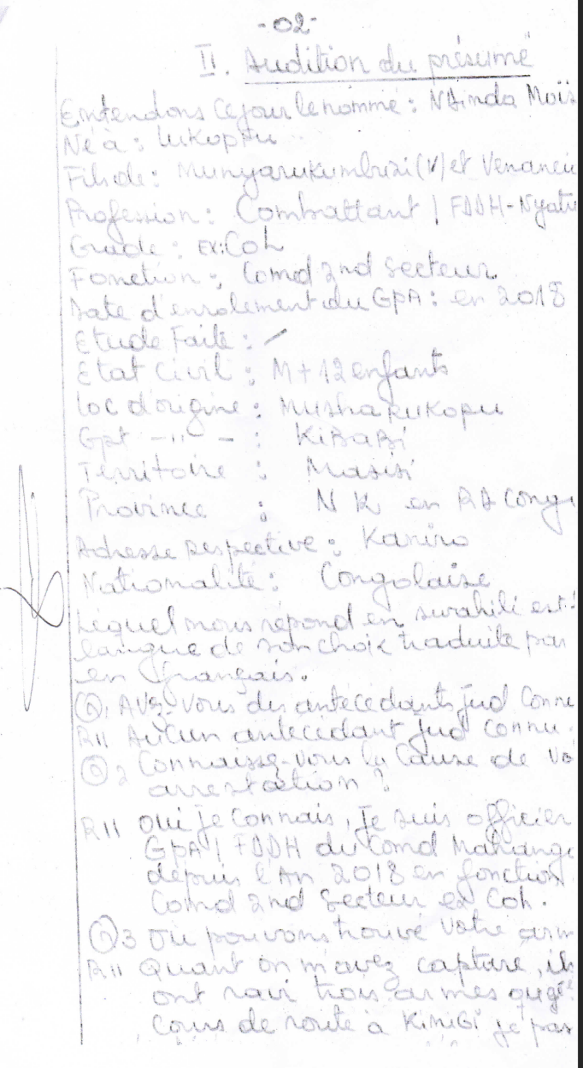 -02-
II. Audition du présumé
Entendons ce jour le nommé : NBinda Moïs
Né à : Lukoppu
Fils de : Munyarukumbuzi (V) et Venancie
Profession : Combattant / FDDH-Nyatu
Grade : ex: Col
Fonction : Comd 2nd Secteur
Date d'enrolement du GPA : en 2018
Etude Faite : /
Etat Civil : M + 12 enfants
Loc d'origine : Musharukopu
Gpt -"- : KiBABi
Territoire : Masisi
Province : NK en RD Congo
Adresse respective :
Nationalité : Congolaise
Lequel nous répond en swahili est
langue de son choix traduite par
en français.
Q1 Avez-vous des antécédants jud Connu
R11 Aucun antécédant jud connu.
Q2 Connaissez-vous la Cause de vo
arrestation ?
R11 Oui je Connais, je suis officier
GPA / FDDH du Comd
depuis l'An 2018 en fonction
Comd 2nd Secteur ex Col.
Q3 Où pouvons trouvé votre arm
R11 Quant on m'avez capturé, ils
ont ravi trois armes
cours de route à je pas